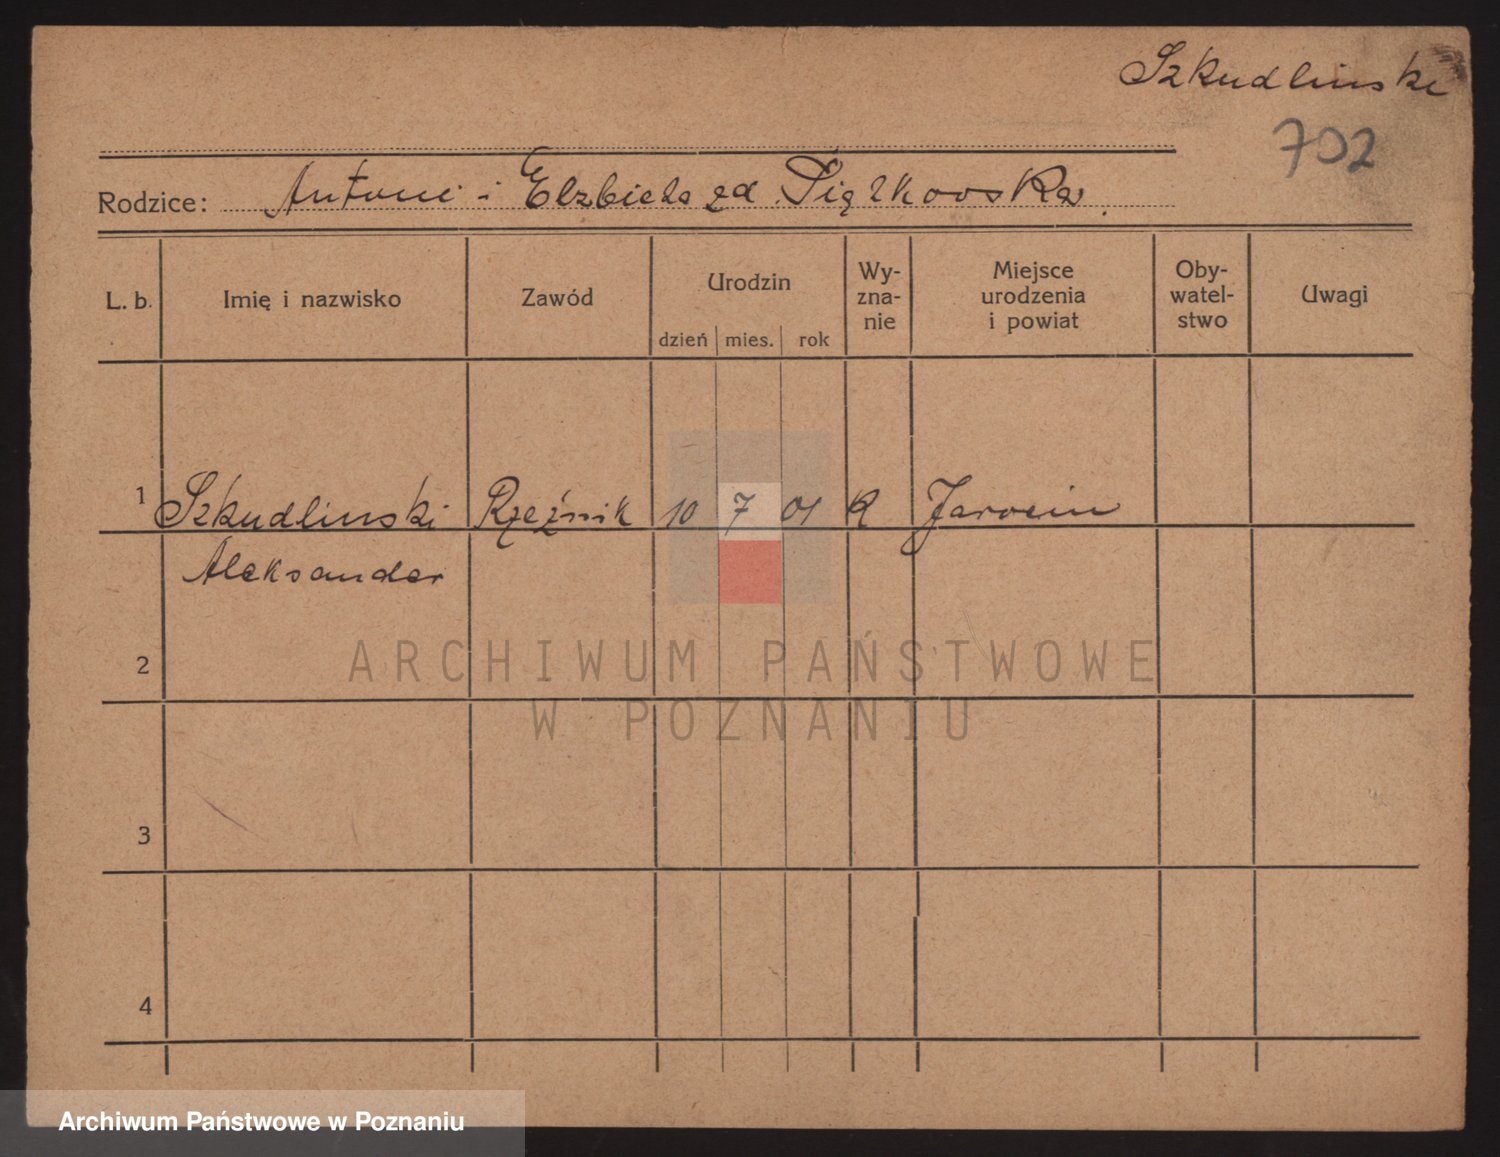 Szkudlinski
702
Rodzice: Antoni i Elzbieta zd. Piątkowska.
L. b. Imię i nazwisko Zawód Urodzin Wy-zna-nie Miejsce urodzenia i powiat Oby-watel-stwo Uwagi
dzień mies. rok
1 Szkudlinski Rzeźnik 10 7 01 K Jarocin
Aleksander
2
ARCHIWUM PAŃSTWOWE
W POZNANIU
3
4
Archiwum Państwowe w Poznaniu